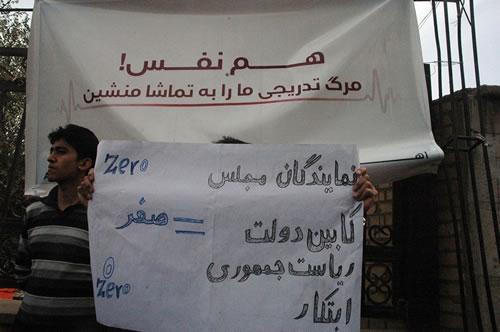 هم نفس!
مرگ تدریجی ما را به تماشا منشین
Zero
نمایندگان مجلس
کابین دولت
= صفر
ریاست جمهوری
0
Zero
ابتکار